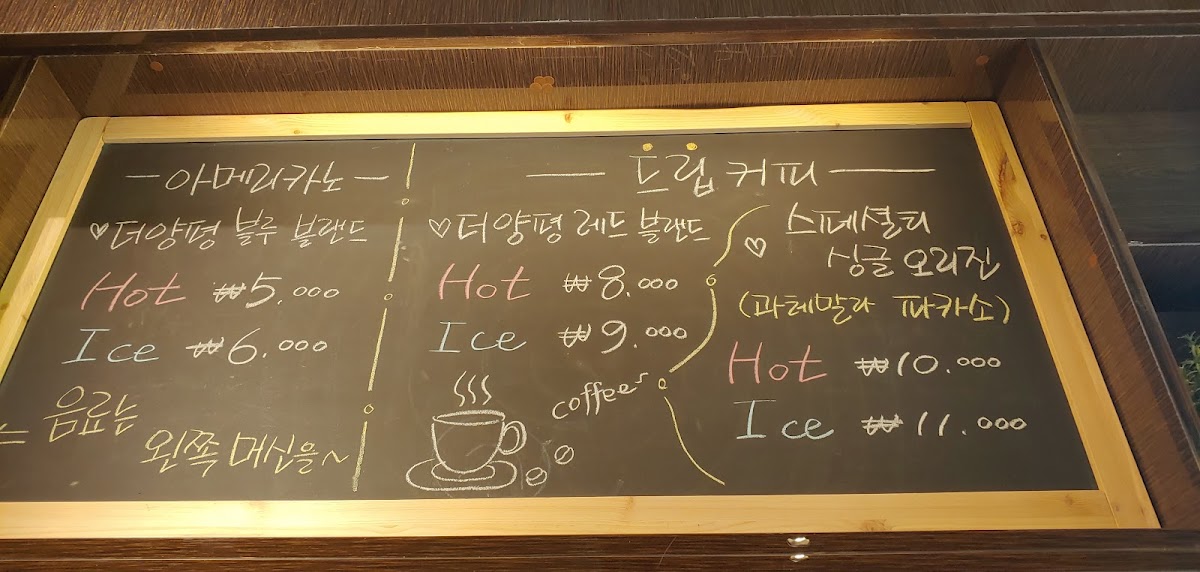 아메리카노
♡더양평 블루 블랜드
Hot ₩5.000
Ice ₩6.000
음료는
왼쪽 매신을~
드립 커피
♡더양평 레드 블랜드
Hot ₩8.000
Ice ₩9.000
coffee
♡ 스페셜티
싱글 오리진
(과테말라 파카소)
Hot ₩10.000
Ice ₩11.000